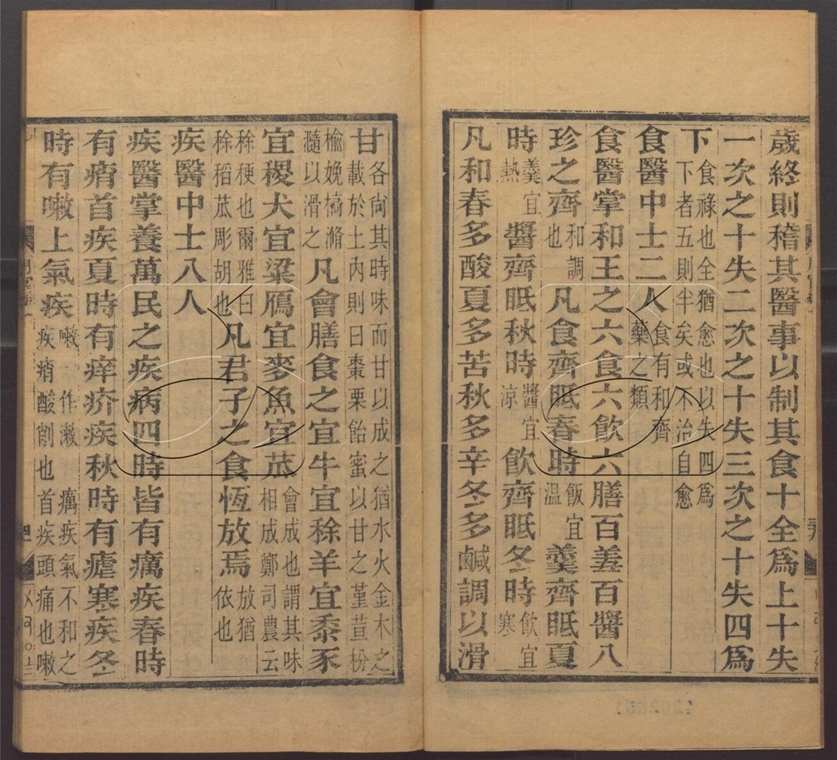 歲終則稽其醫事以制其食十全爲上十失
一次之十失二次之十失三次之十失四爲
下食祿也全猶愈也以失四爲下者五則半矣或不治自愈
食醫中士二人食有和齊藥之類
食醫掌和王之六食六飲六膳百羞百醬八
珍之齊和調也凡食齊眡春時飯宜溫羹齊眡夏
時羹宜熱醬齊眡秋時醬宜涼飲齊眡冬時飲宜寒
凡和春多酸夏多苦秋多辛冬多鹹調以滑
甘各尙其時味而甘以成之猶水火金木之載於土內則曰棗栗飴蜜以甘之堇荁枌
榆娩槁滫瀡以滑之凡會膳食之宜牛宜稌羊宜黍豕
宜稷犬宜粱鴈宜麥魚宜苽會成也謂其味相成鄭司農云
稌稉也爾雅曰稌稻苽彫胡也凡君子之食恆放焉放猶依也
疾醫中士八人
疾醫掌養萬民之疾病四時皆有癘疾春時
有痟首疾夏時有痒疥疾秋時有瘧寒疾冬
時有嗽上氣疾癘疾氣不和之疾痟酸削也首疾頭痛也嗽
四